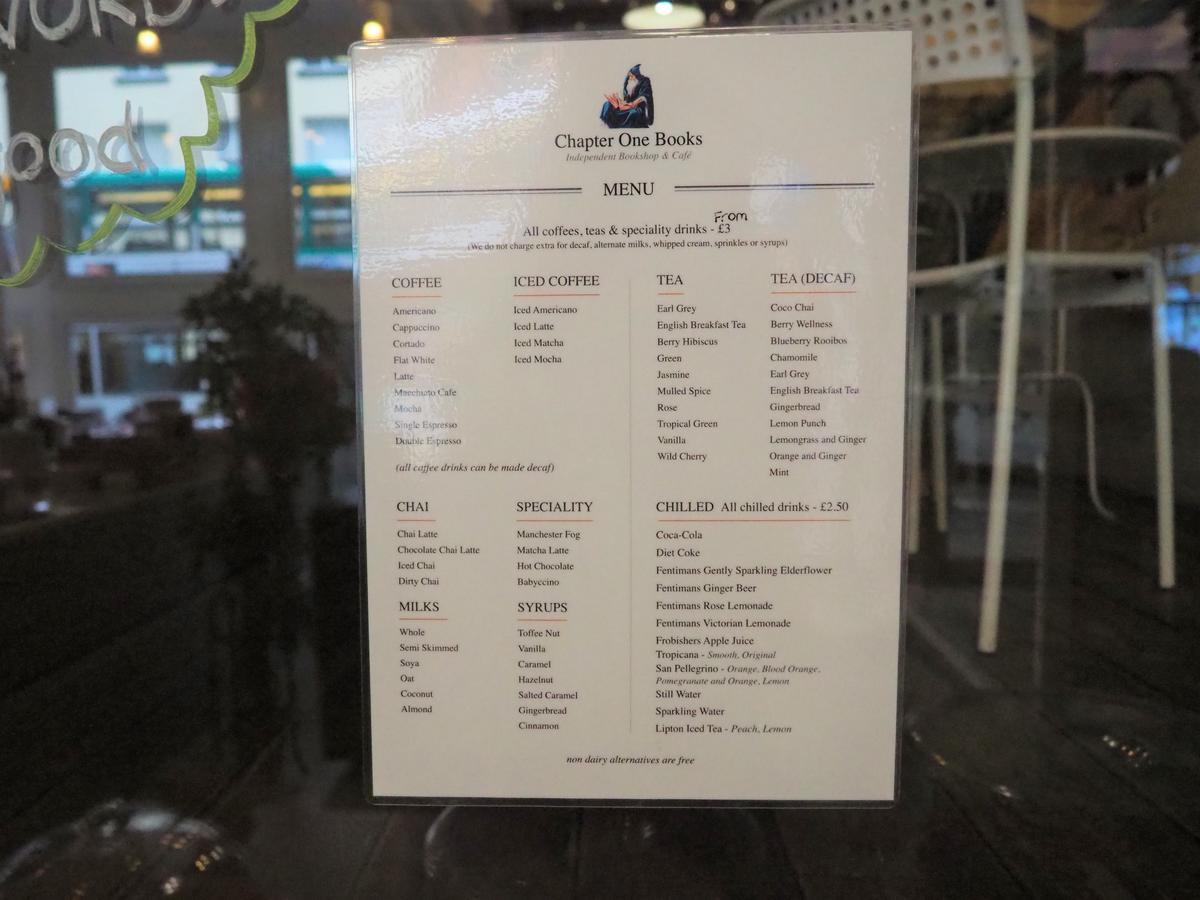 ood
Chapter One Books
Independent Bookshop & Café
MENU
From
All coffees, teas & speciality drinks - £3
(We do not charge extra for decaf, alternate milks, whipped cream, sprinkles or syrups)
COFFEE
Americano
Cappuccino
Cortado
Flat White
Latte
Macchiato Cafe
Mocha
Single Espresso
Double Espresso
(all coffee drinks can be made decaf)
ICED COFFEE
Iced Americano
Iced Latte
Iced Matcha
Iced Mocha
TEA
Earl Grey
English Breakfast Tea
Berry Hibiscus
Green
Jasmine
Mulled Spice
Rose
Tropical Green
Vanilla
Wild Cherry
TEA (DECAF)
Coco Chai
Berry Wellness
Blueberry Rooibos
Chamomile
Earl Grey
English Breakfast Tea
Gingerbread
Lemon Punch
Lemongrass and Ginger
Orange and Ginger
Mint
CHAI
Chai Latte
Chocolate Chai Latte
Iced Chai
Dirty Chai
SPECIALITY
Manchester Fog
Matcha Latte
Hot Chocolate
Babyccino
MILKS
Whole
Semi Skimmed
Soya
Oat
Coconut
Almond
SYRUPS
Toffee Nut
Vanilla
Caramel
Hazelnut
Salted Caramel
Gingerbread
Cinnamon
CHILLED All chilled drinks - £2.50
Coca-Cola
Diet Coke
Fentimans Gently Sparkling Elderflower
Fentimans Ginger Beer
Fentimans Rose Lemonade
Fentimans Victorian Lemonade
Frobishers Apple Juice
Tropicana - Smooth, Original
San Pellegrino - Orange, Blood Orange,
Pomegranate and Orange, Lemon
Still Water
Sparkling Water
Lipton Iced Tea - Peach, Lemon
non dairy alternatives are free